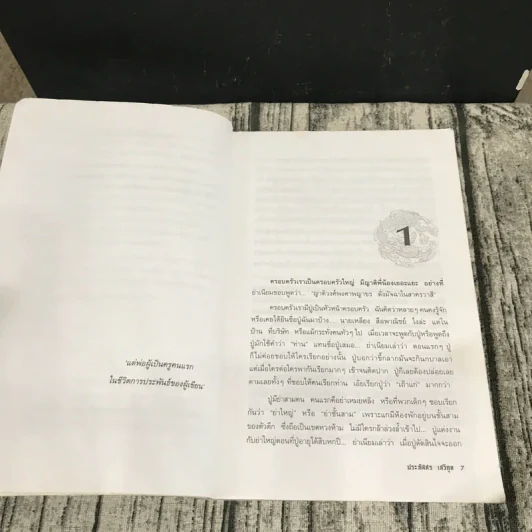 "แด่พ่อผู้เป็นครูคนแรก
ในชีวิตการประพันธ์ของผู้เขียน"
1
ครอบครัวเราเป็นครอบครัวใหญ่ มีญาติพี่น้องเยอะแยะ อย่างที่
ย่าเนียมชอบพูดว่า... "ญาติวงศ์พงศาพญาขร ดังมัจฉาในสาครวาสี"
ครอบครัวเรามีปู่เป็นหัวหน้าครอบครัว ฉันคิดว่าหลายๆ คนคงรู้จัก
หรือเคยได้ยินชื่อปู่ฉันมาบ้าง... นายเหลียง ลือพาณิชย์ ไงล่ะ แต่ใน
บ้าน ที่บริษัท หรือแม้กระทั่งคนทั่วๆ ไป เมื่อเวลาจะพูดกับปู่หรือพูดถึง
ปู่มักใช้คำว่า "ท่าน" แทนชื่อปู่เสมอ... ย่าเนียมเล่าว่า ตอนแรกๆ ปู่
ก็ไม่ค่อยชอบให้ใครเรียกอย่างนั้น ปู่บอกว่าขี้กลากมันจะกินกบาลเอา
แต่เมื่อใครต่อใครพากันเรียกมากๆ เข้าจนติดปาก ปู่ก็เลยต้องปล่อยเลย
ตามเลยทั้งๆ ที่ชอบให้คนเรียกท่าน เอ๊ยเรียกปู่ว่า "เถ้าแก่" มากกว่า
ปู่มีย่าสามคน คนแรกคือย่าเหมยหลิง หรือที่พวกเด็กๆ ชอบเรียก
กันว่า "ย่าใหญ่" หรือ "ย่าชั้นสาม" เพราะแกมีห้องพักอยู่บนชั้นสาม
ของตัวตึก ซึ่งถือเป็นเขตหวงห้าม ไม่มีใครกล้าล่วงล้ำเข้าไป... ปู่แต่งงาน
กับย่าใหญ่ตอนที่ปู่อายุได้สิบหกปี... ย่าเนียมเล่าว่า เมื่อปู่ตัดสินใจจะออก
ประภัสสร เสวิกุล 7